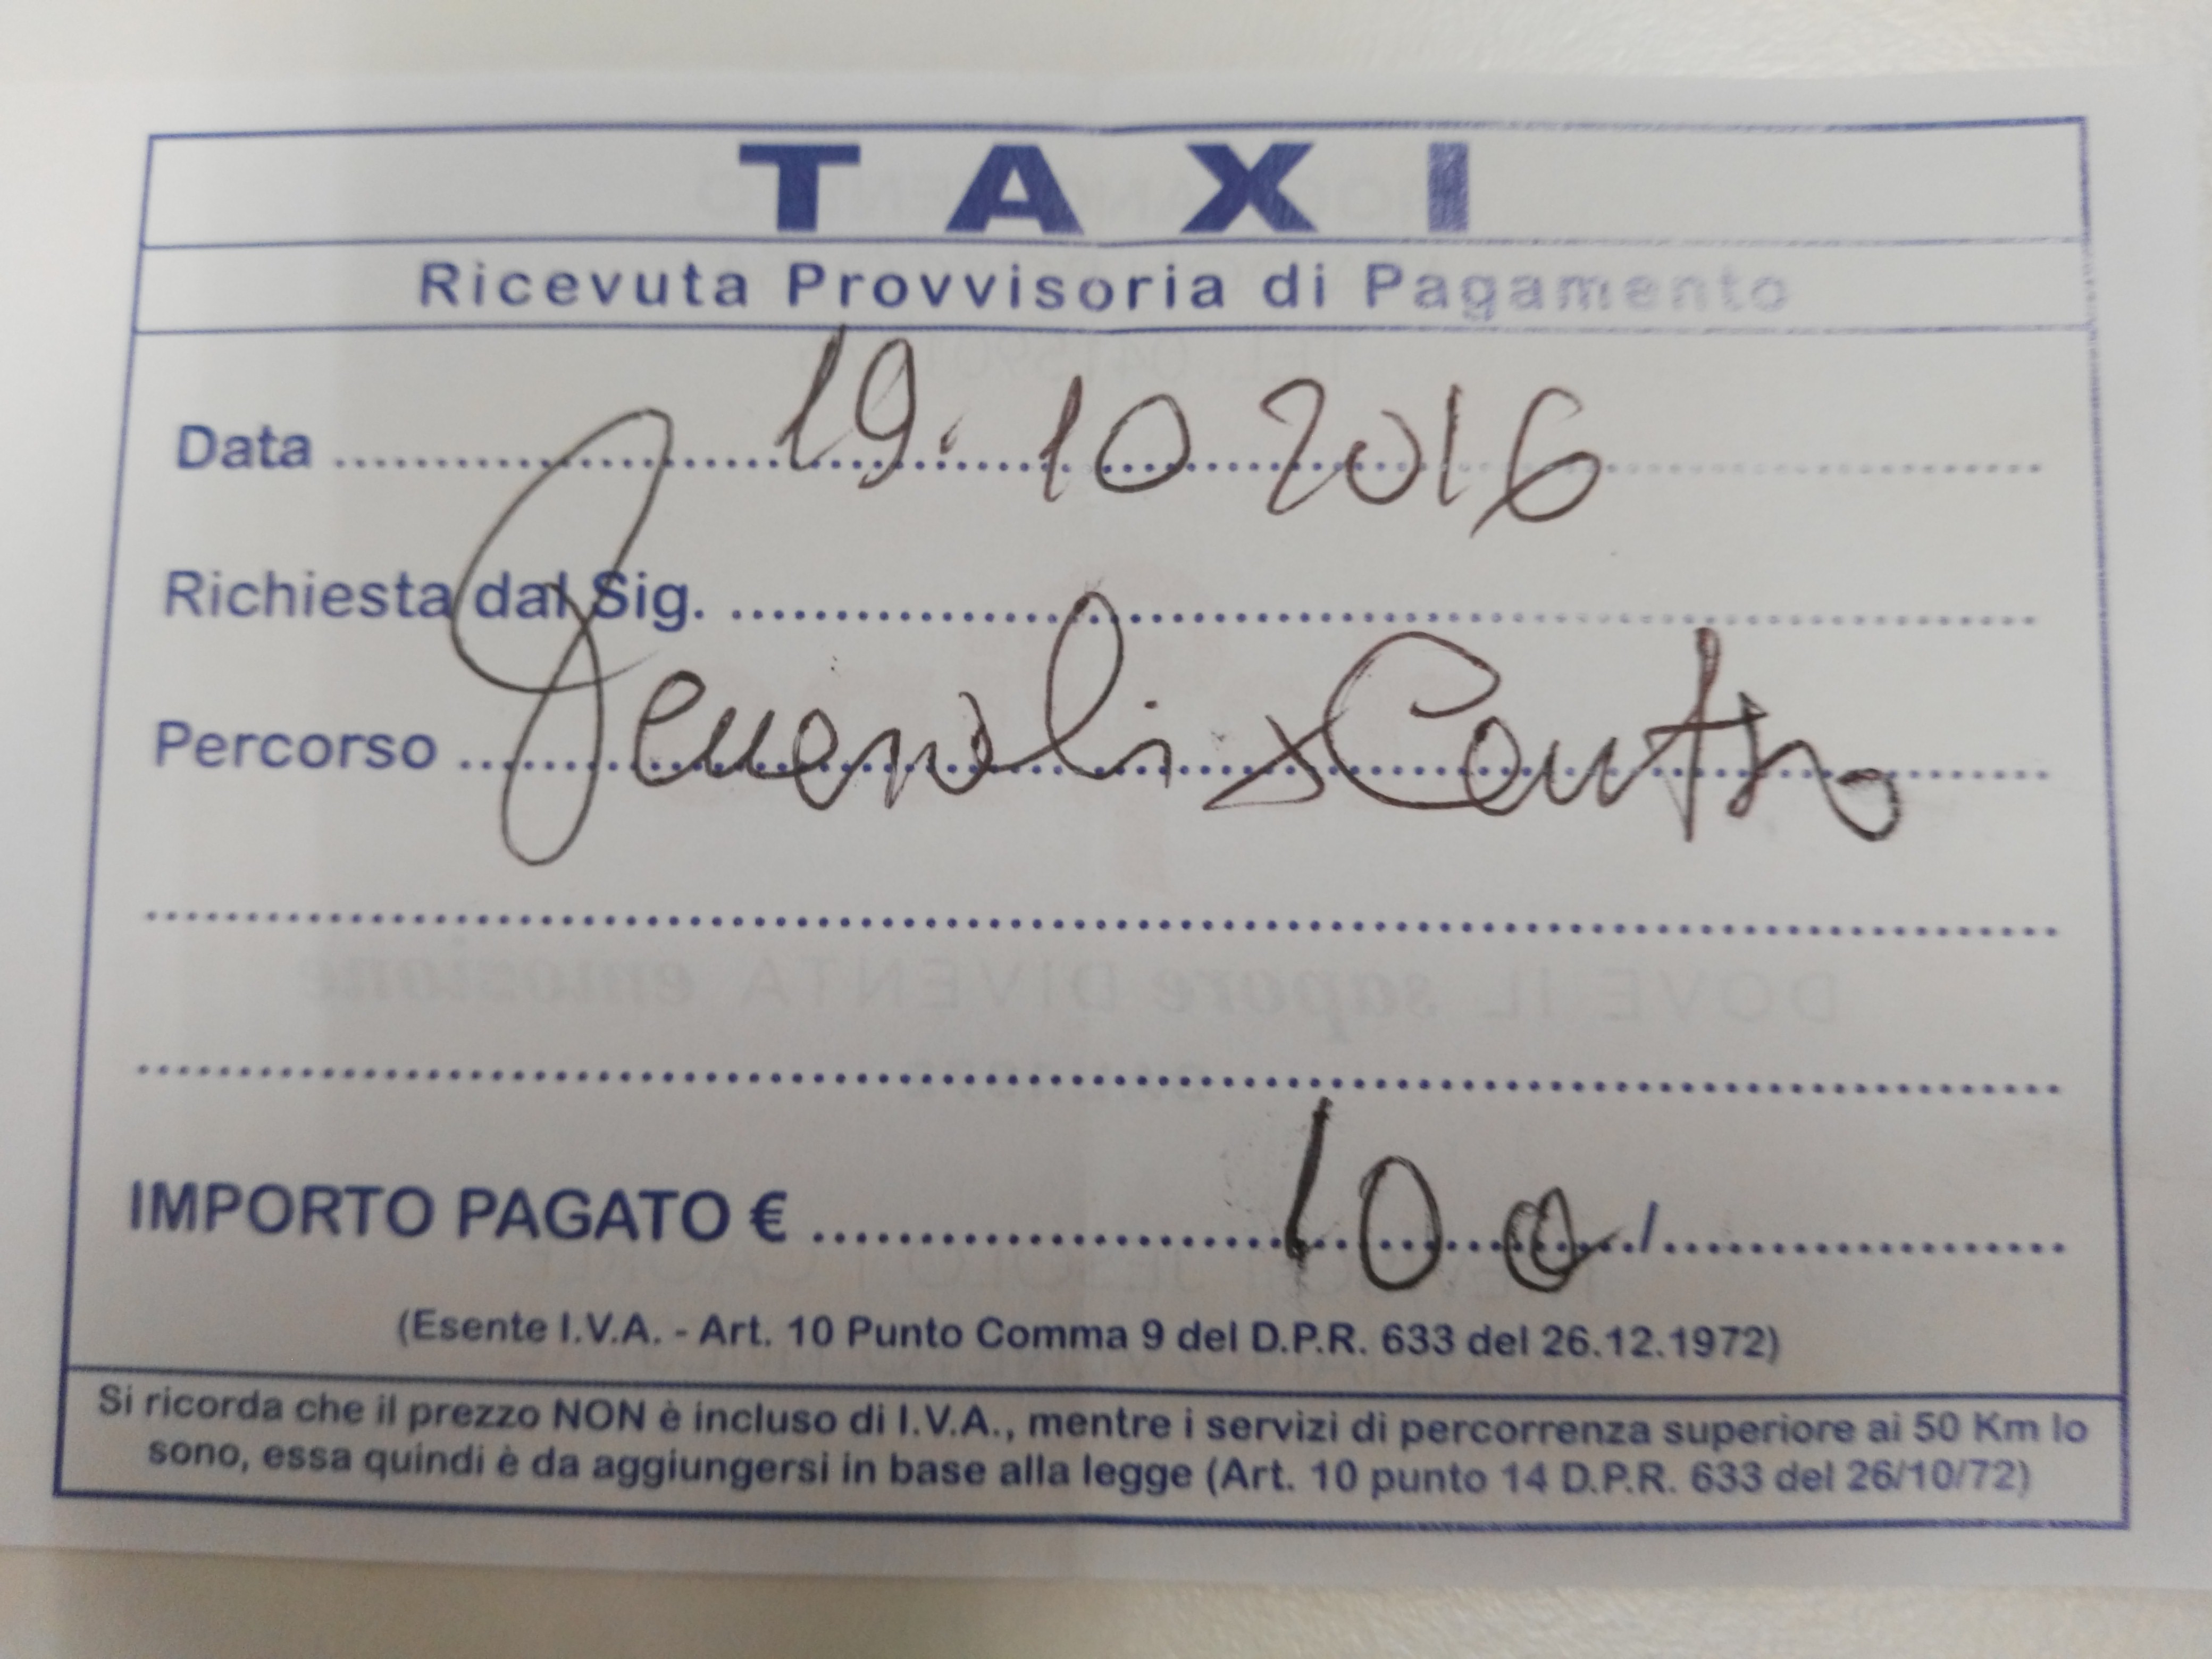 TAXI
Ricevuta Provvisoria di Pagamento
Data .......... 19.10 2016
Richiesta dal Sig. ..........
Percorso .......... Generali x Centro
IMPORTO PAGATO € .......... 10 ..../..........
(Esente I.V.A. - Art. 10 Punto Comma 9 del D.P.R. 633 del 26.12.1972)
Si ricorda che il prezzo NON è incluso di I.V.A., mentre i servizi di percorrenza superiore ai 50 Km lo
sono, essa quindi è da aggiungersi in base alla legge (Art. 10 punto 14 D.P.R. 633 del 26/10/72)
DOVE IL sapore DIVENTA emozione